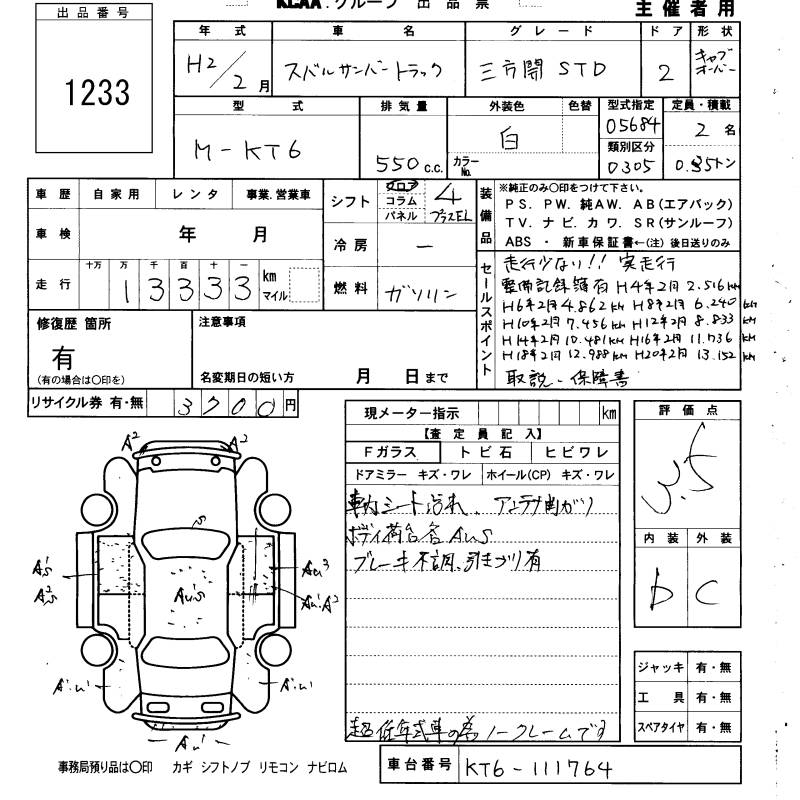 KCAA.グループ 出品票
主催者用
出品番号
1233
年式 車名 グレード ドア 形状
H2/2月 スバルサンバートラック 三方開 STD 2 キャブオーバー
型式 排気量 外装色 色替 型式指定 定員・積載
M-KT6 550c.c. 白 カラーNo. 05684 2名
類別区分
0305 0.35トン
車歴 自家用 レンタ 事業.営業車
車検 年 月
走行 十万 万 千 百 十 一 km マイル
13333
シフト フロア コラム パネル 4
冷房 ー
燃料 ガソリン
装備品
※純正のみ〇印をつけて下さい。
PS. PW. 純AW. AB(エアバック)
TV. ナビ. カワ. SR(サンルーフ)
ABS ・ 新車保証書←(注) 後日送りのみ
セールスポイント
走行少ない!! 実走行
整備記録簿有 H4年2月 2.516km
H6年2月 4.862km H8年2月 6.240km
H10年2月 7.456km H12年2月 8.833km
H14年2月 10.481km H16年2月 11.736km
H18年2月 12.988km H20年2月 13.152km
取説、保障書
修復歴 箇所
有
(有の場合は〇印を)
注意事項
名変期日の短い方 月 日まで
リサイクル券 有・無 3700円
現メーター指示 km
【査定員記入】
Fガラス トビ石 ヒビワレ
ドアミラー キズ・ワレ ホイール(CP) キズ・ワレ
車内シート汚れ、アンテナ曲がり
ボディ荷台各AUS
ブレーキ不調、引きづり有
超低年式車の為ノークレームです
評価点
3.5
内装 外装
D C
ジャッキ 有・無
工具 有・無
スペアタイヤ 有・無
A2 A2
S
A'S
A2S
AU'S
AU3
AU'.A2
A'.U'
A'.U'
AU'
事務局預り品は〇印 カギ シフトノブ リモコン ナビロム
車台番号 KT6-111764